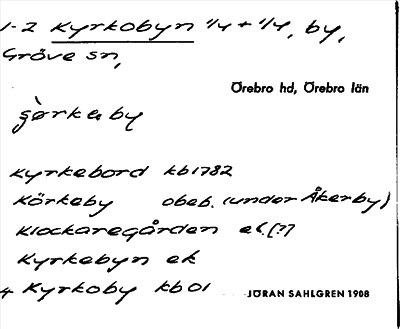 1-2 Kyrkobyn 1/4 + 1/4, by,
Gräve sn,
Örebro hd, Örebro län
Kyrkebord kb1782
Körkeby obeb. (under Åkerby)
Klockaregården ek. [?]
Kyrkebyn ek
4 Kyrkoby kb01
JÖRAN SAHLGREN 1908